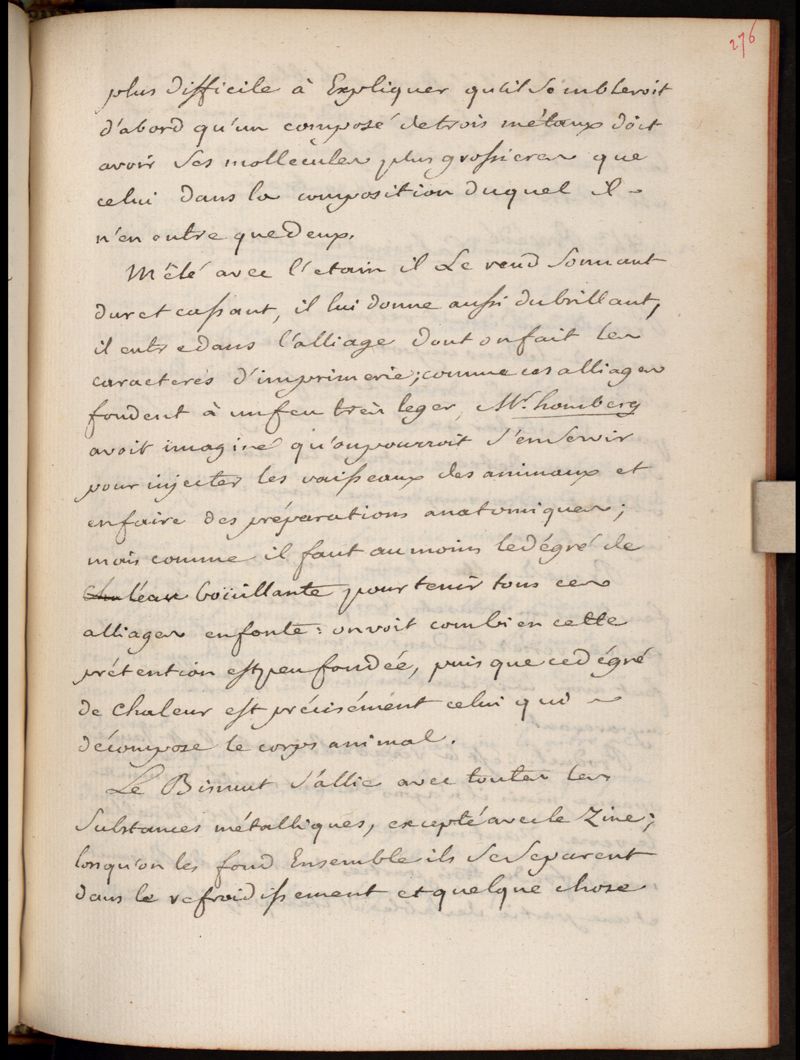 276
plus difficile à Expliquer qu'il sembleroit
d'abord qu'un composé de trois métaux doit
avoir ses mollecules plus grossieres que
celui dans la composition duquel il -
n'en entre que Deux.
Mêlé avec l'etain il Le rend Sonnant
dur et cassant, il lui donne aussi du brillant,
il entre dans l'alliage dont on fait les
caracteres d'imprimerie; comme ces alliages
fondent à un feu très leger, Mr. homberg
avoit imaginé qu'on pourroit s'en servir
pour injecter les vaisseaux des animaux et
en faire des préparations anatomiques;
mais comme il faut au moins le dégré de
l'eau boüillante pour tenir tous ces
alliages en fonte: on voit combien cette
prétention est peu fondée, puis que ce dégré
de chaleur est précisément celui qui ~
décompose le corps animal.
Le Bismut s'allie avec toutes les
substances métalliques, excepté avec le Zinc;
lorsqu'on les fond Ensemble ils se separent
dans le refroidissement et quelque chose